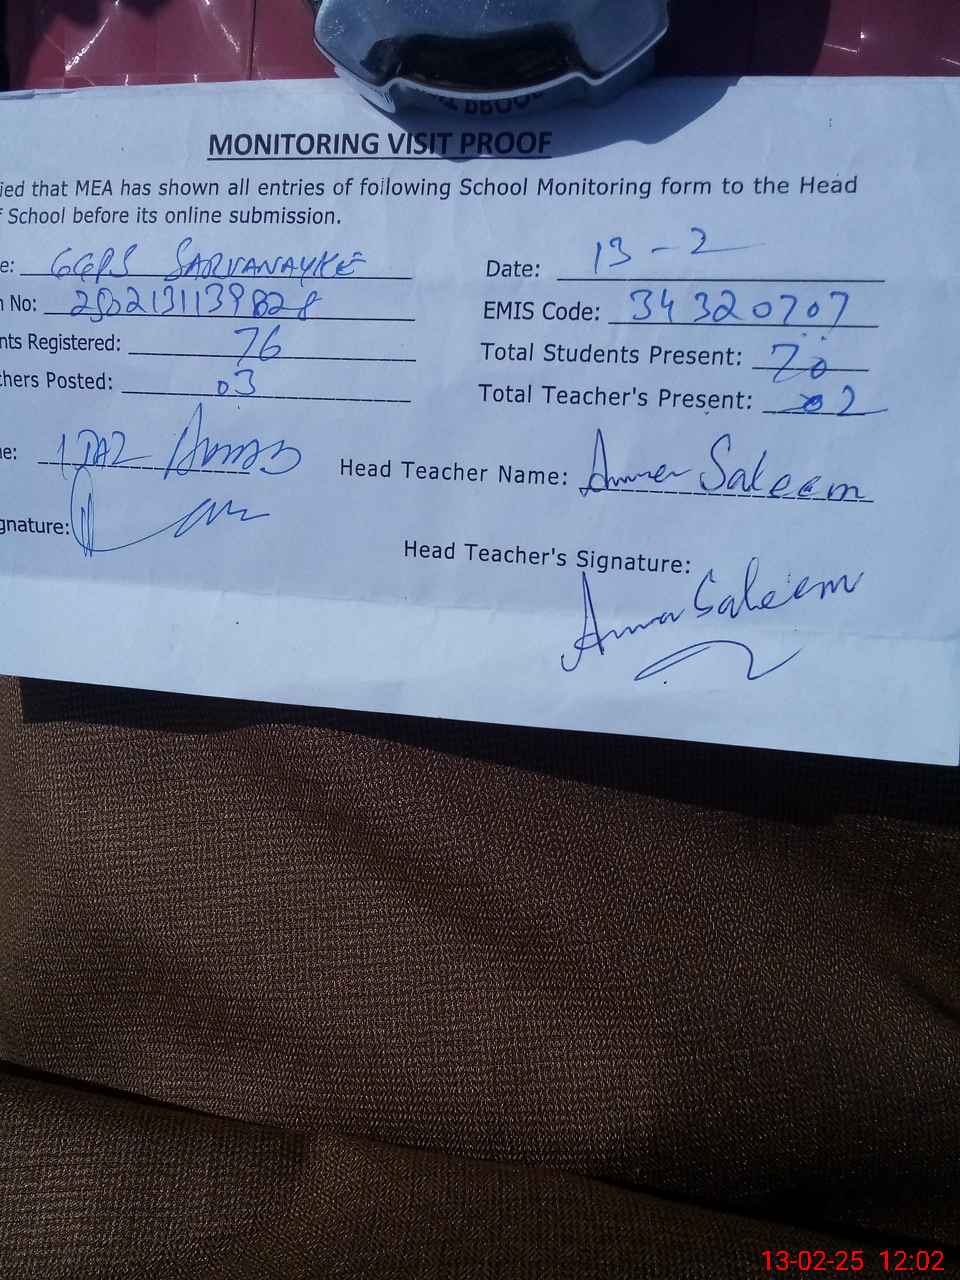 MONITORING VISIT PROOF
ied that MEA has shown all entries of following School Monitoring form to the Head
f School before its online submission.
e: GGPS SARVANAYKE Date: 13-2
n No: EMIS Code: 34320707
nts Registered: 76 Total Students Present: 70
hers Posted: 03 Total Teacher's Present: 02
e: IJAZ Head Teacher Name: Saleem
gnature: Head Teacher's Signature:
Saleem
13-02-25 12:02